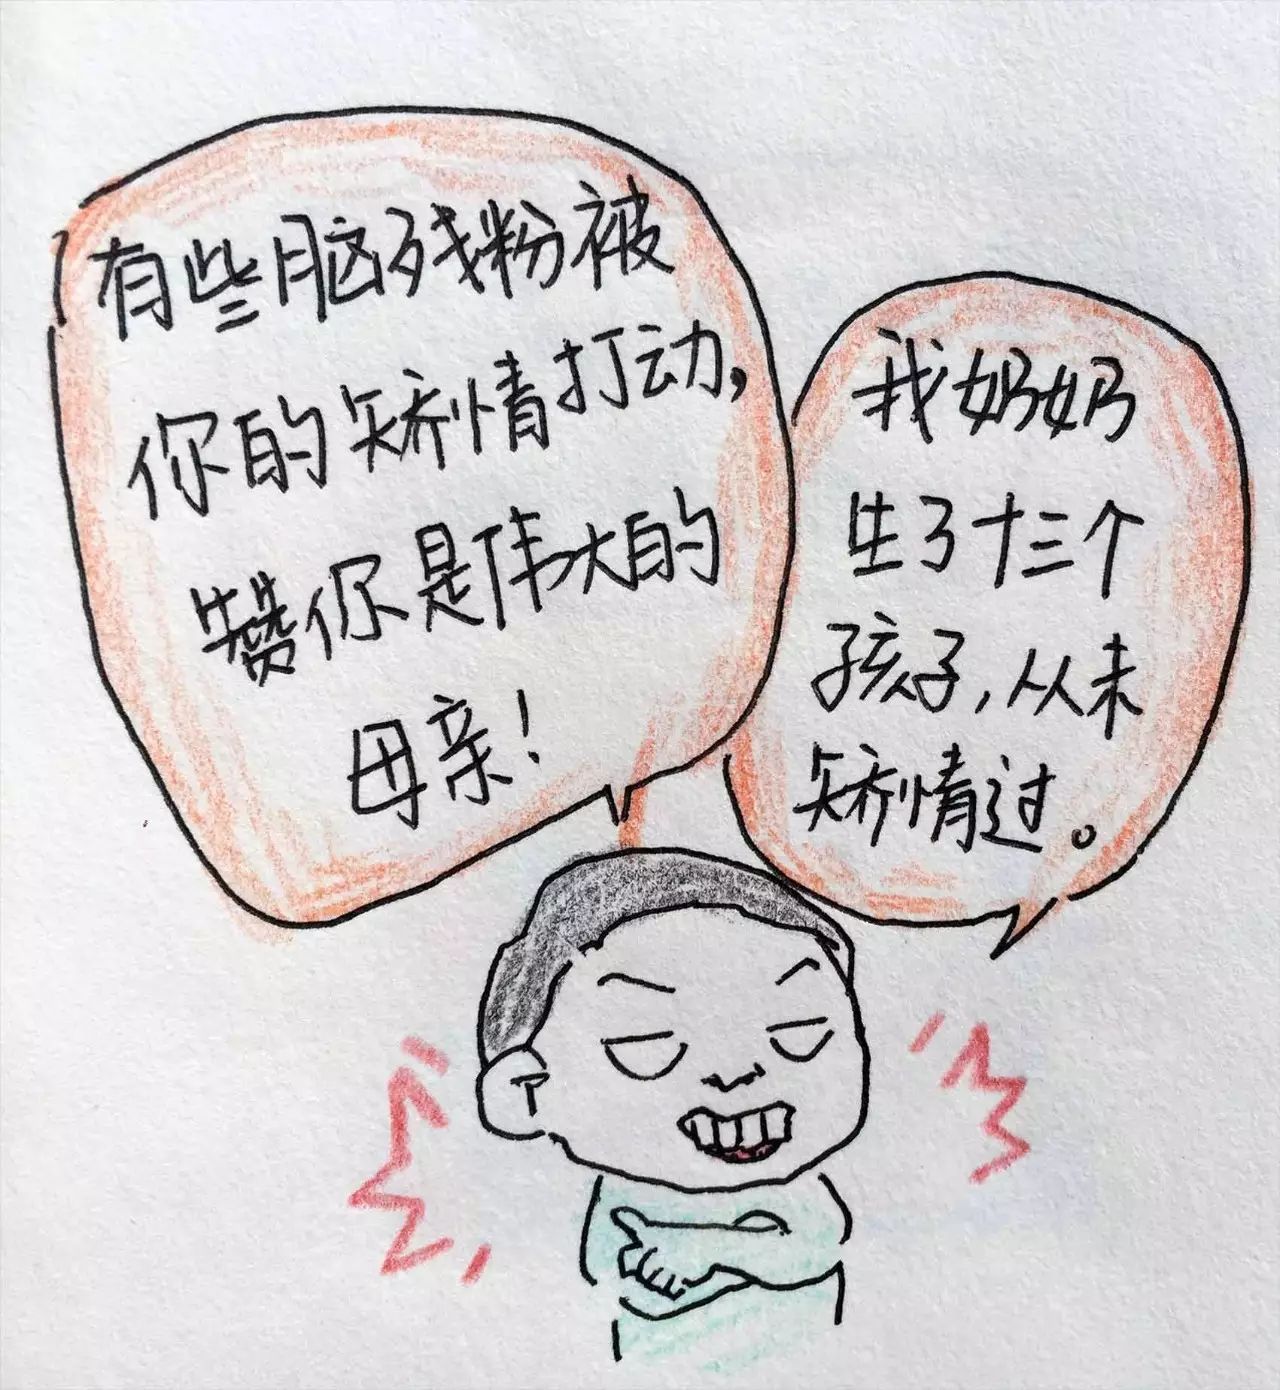 有些脑残粉被
你的矫情打动,
赞你是伟大的
母亲!
我奶奶
生了十三个
孩子,从未
矫情过。